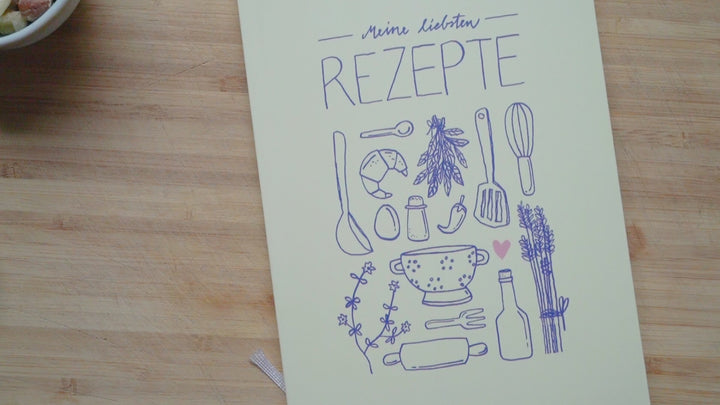 Meine liebsten
REZEPTE